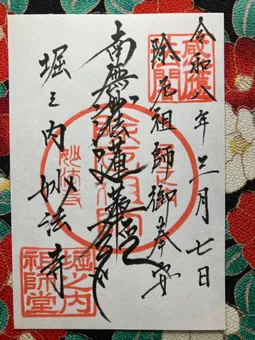 令和八年三月七日
除厄祖師御奉安
南無妙法蓮華経
堀之内妙法寺
堀之内
祖師堂